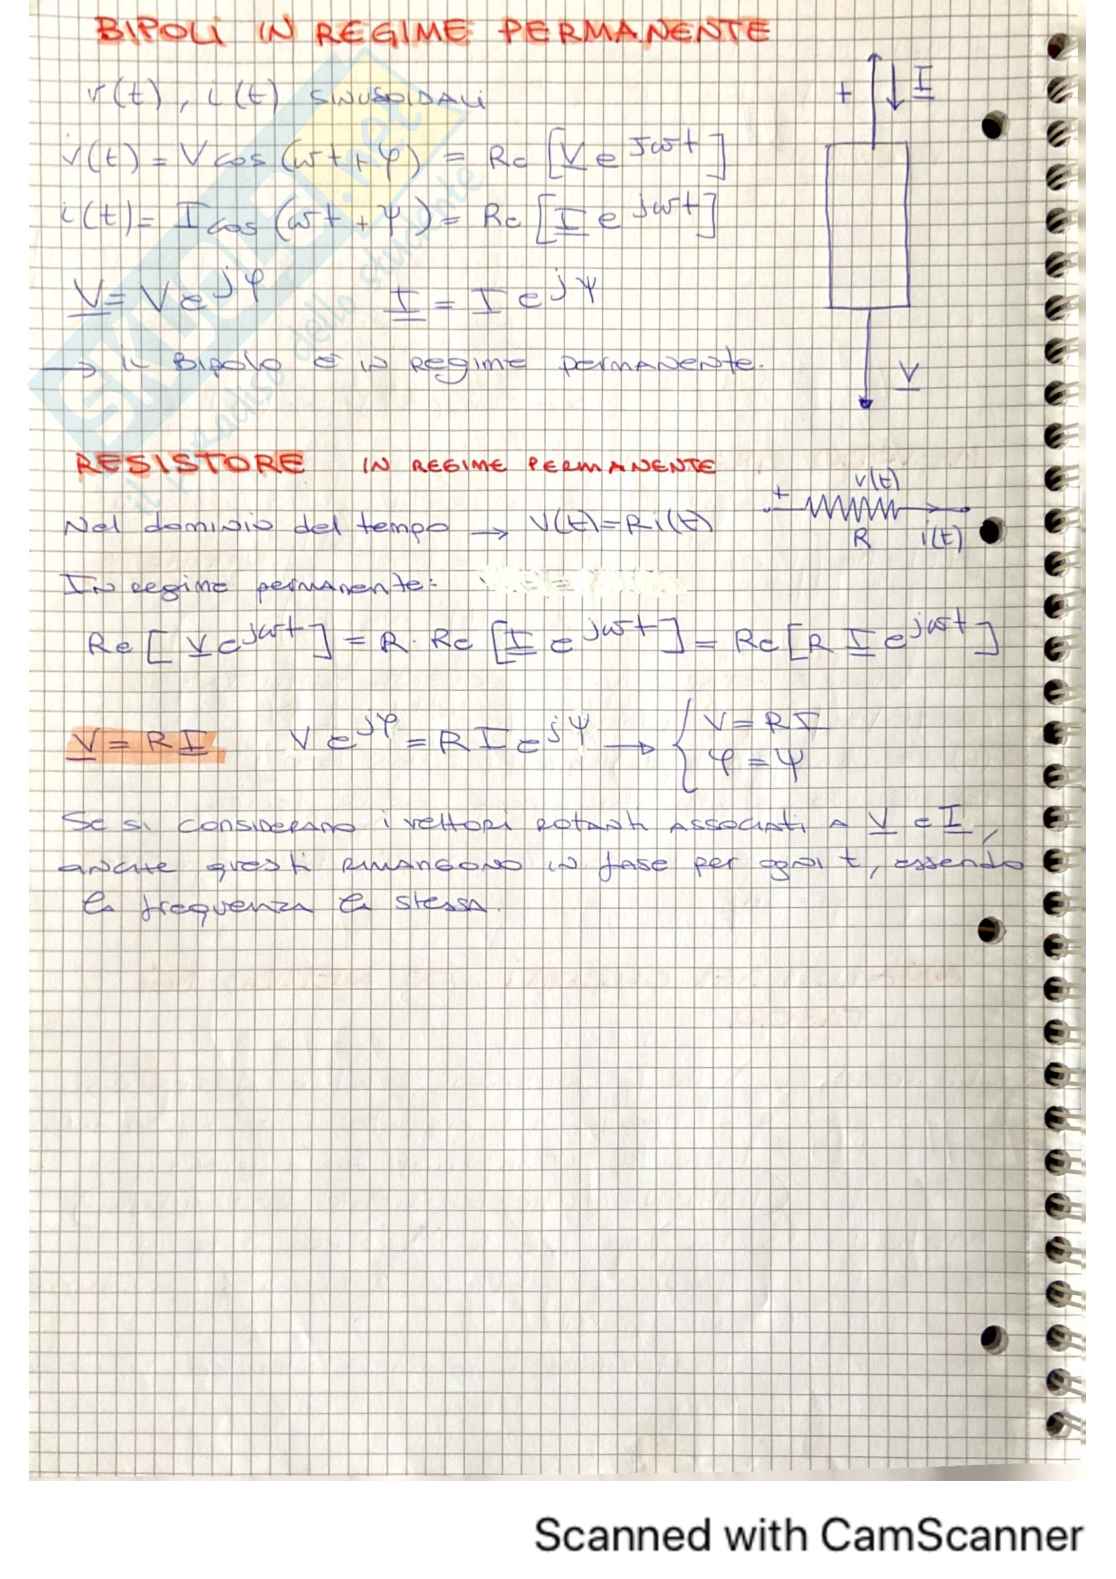 BIPOLI IN REGIME PERMANENTE
v(t), i(t) SINUSOIDALI
v(t) = V cos (ωt + φ) = Re [V e^jωt]
i(t) = I cos (ωt + ψ) = Re [I e^jωt]
V = V e^jφ I = I e^jψ
→ IL BIPOLO È IN REGIME PERMANENTE.
+ I
V
RESISTORE IN REGIME PERMANENTE
Nel dominio del tempo → V(t) = R i(t)
+ v(t) R i(t)
IN REGIME PERMANENTE:
Re [V e^jωt] = R · Re [I e^jωt] = Re [R I e^jωt]
V = R I V e^jφ = R I e^jψ → { V = R I
φ = ψ
Se si considerano i vettori rotanti associati a V e I,
anche questi rimangono in fase per ogni t, essendo
la frequenza la stessa.
SKUOLA.net
il paradiso dello studente
Scanned with CamScanner